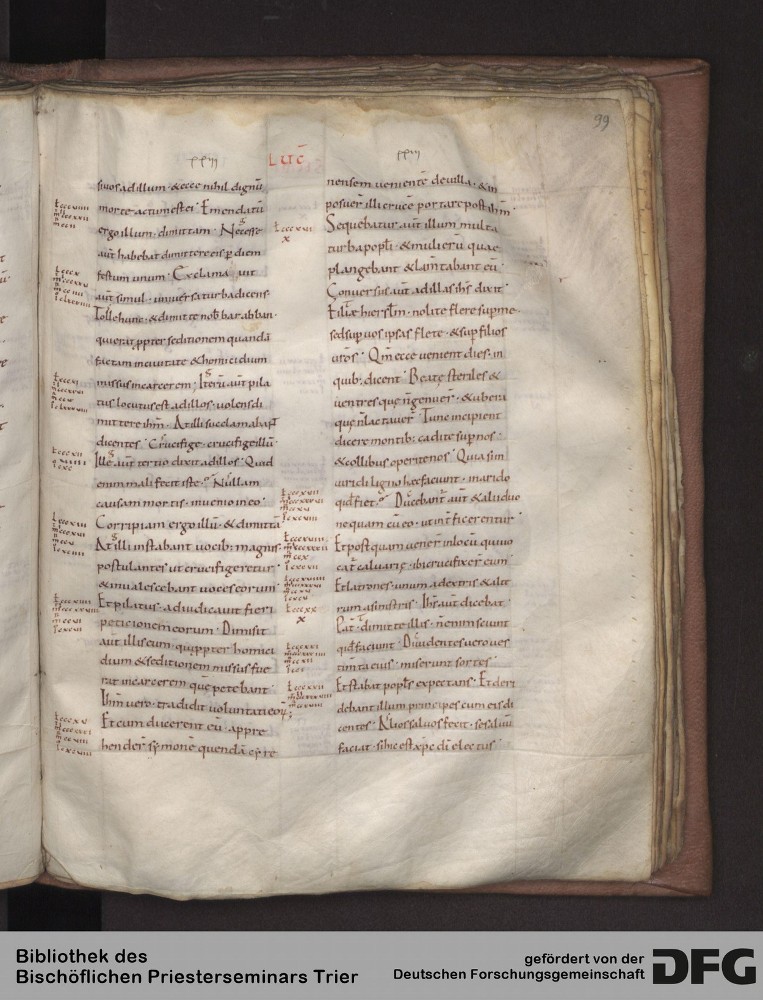 99
LUC
suos ad illum · & ecce nihil dignū
morte actum est ei · Emendatū
ergo illum · dimittam · Necesse
aut̄ habebat dimittere eis ꝑ diem
festum unum · Exclama uit
aut̄ simul · uniuersa turba dicens ·
Tolle hunc · & dimitte nob̄ barabban ·
qui erat ꝓpter seditionem quandā
factam in ciuitate & homicidium
missus in carcerem · Iterū aut̄ pila
tus locutus est ad illos · uolens di
mittere ihm̄ · At illi succlamabant
dicentes · Crucifige · crucifige illū ·
Ille aut̄ tertio dixit ad illos · Quid
enim mali fecit iste · Nullam
causam mortis · inuenio in eo ·
Corripiam ergo illū · & dimittā
At illi instabant uocib: magnis ·
postulantes ut crucifigeretur ·
& inualescebant uoces eorum ·
Et pilatus · adiudicauit fieri
peticionem eorum · Dimisit
aut̄ illis eum · qui ꝓpter homici
dium & seditionem missus fue
rat in carcerem quē petebant ·
Ihm̄ uero · tradidit uoluntati eoꝝ ;
Et cum ducerent eū · appre
hender̄ symonē quendā cyre
nensem uenientē de uilla · & in
posuer̄ illi crucē portare post ihm̄ ·
Sequebatur aut̄ illum multa
turba popl̄i · & mulierū quae
plangebant & lam̄tabant eū ·
Conuersus aut̄ ad illas ih̄s dixit ·
Filiæ hierslm̄ · nolite flere sup̄ me ·
sed sup̄ uos ipsas flete · & sup̄ filios
ur̄os · Qm̄ ecce uenient dies · in
quib; dicent · Beatę steriles &
uentres quę n̄ genuer̄ · & ubera
quę n̄ lactauer̄ · Tunc incipient
dicere montib: cadite sup̄ nos ·
& collibus operite nos · Quia si in
uiridi ligno hęc faciunt · in arido
quid fiet · Ducebant̄ aut̄ & alii duo
nequam cū eo · ut int̄ficerentur ·
Et postquam uener̄ in locū qui uo
cat̄ caluarię · ibi crucifixer̄ eum ·
Et latrones · unum a dextris & alte
rum a sinistris · Ihs̄ aut̄ dicebat ·
Pat̄ dimitte illis · n̄ enim sciunt
quid faciunt · Diuidentes uero ues
tim̄ta eius · miserunt sortes ·
Et stabat popl̄s expectans · Et deri
debant illum principes cum eis di
centes · Alios saluos fecit · se saluū
faciat · si hic est xp̄c di̅ electus ·
Bibliothek des
Bischöflichen Priesterseminars Trier
gefördert von der
Deutschen Forschungsgemeinschaft
DFG